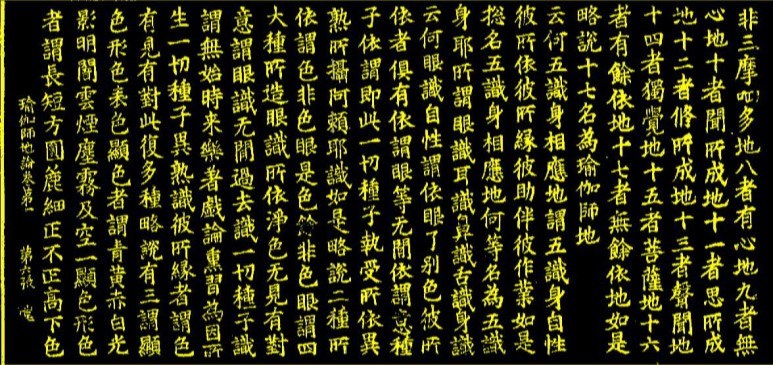 非三摩呬多地八者有心地九者無
心地十者聞所成地十一者思所成
地十二者修所成地十三者聲聞地
十四者獨覺地十五者菩薩地十六
者有餘依地十七者無餘依地如是
略說十七名為瑜伽師地
云何五識身相應地謂五識身自性
彼所依彼所緣彼助伴彼作業如是
揔名五識身相應地何等名為五識
身耶所謂眼識耳識鼻識舌識身識
云何眼識自性謂依眼了別色彼所
依者俱有依謂眼等无間依謂意種
子依謂即此一切種子執受所依異
熟所攝阿賴耶識如是略說二種所
依謂色非色眼是色餘非色眼謂四
大種所造眼識所依淨色无見有對
意謂眼識无間過去識一切種子識
謂無始時来樂著戲論熏習為因所
生一切種子異熟識彼所緣者謂色
有見有對此復多種略說有三謂顯
色形色表色顯色者謂青黃赤白光
影明闇雲煙塵霧及空一顯色形色
者謂長短方圓麁細正不正高下色
瑜伽師地論卷第一 第六張